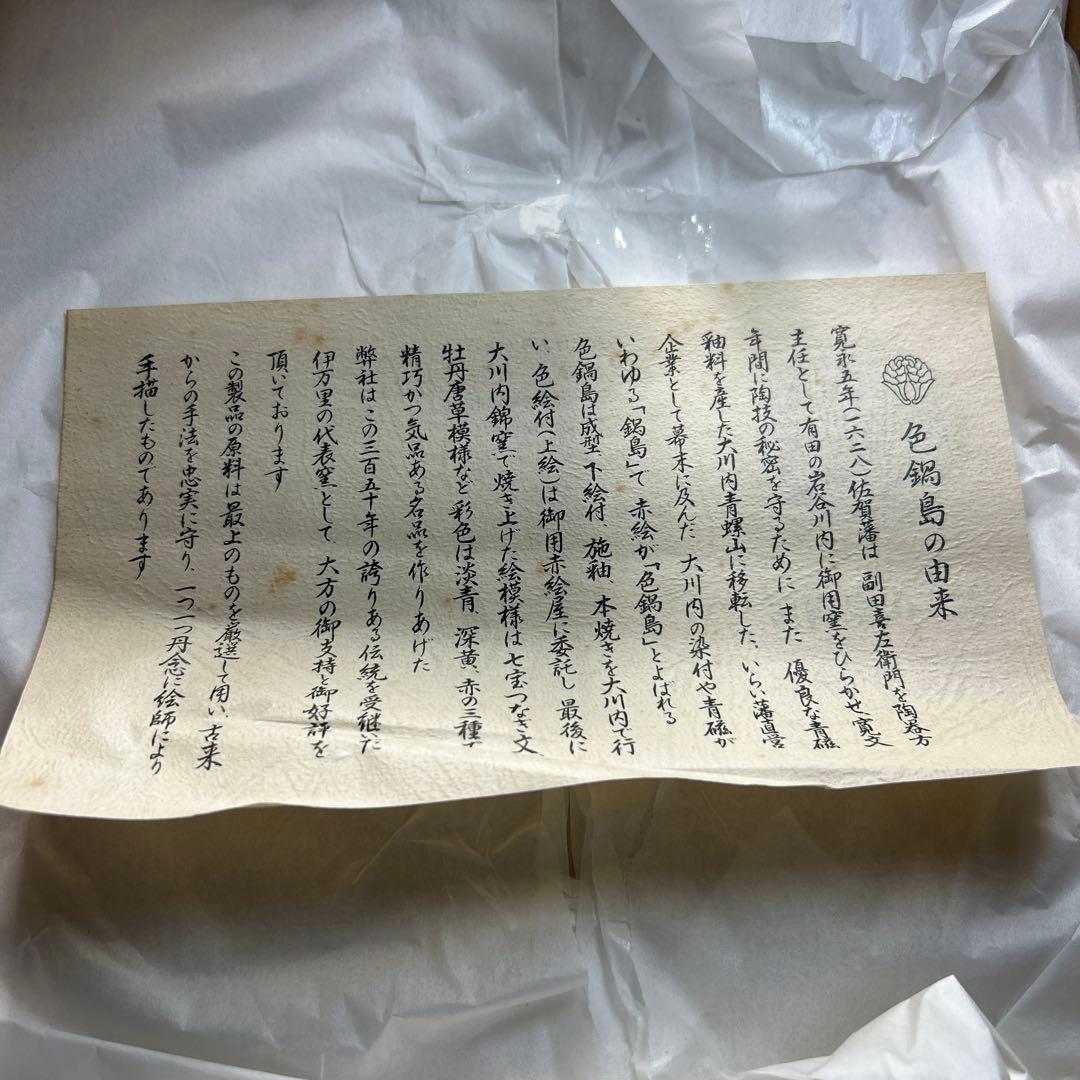 色鍋島の由来
寛永五年(一六二八)佐賀藩は 副田喜左衛門を陶呑方
主任として有田の岩谷川内に御用窯をひらかせ 寛文
年間に陶技の秘密を守るために また 優良な青磁
釉料を産した大川内青螺山に移転した、いらい藩直営
企業として幕末に及んだ 大川内の染付や青磁が
いわゆる「鍋島」で 赤絵が「色鍋島」とよばれる
色鍋島は成型 下絵付、施釉、本焼きを大川内で行
い、色絵付(上絵)は御用赤絵屋に委託し 最後に
大川内錦窯で焼き上げた絵模様は七宝つなぎ文、
牡丹唐草模様など 彩色は淡青、深黄、赤の三種で
精巧かつ気品ある名品を作りあげた
弊社はこの三百五十年の誇りある伝統を受継だ
伊万里の代表窯として 大方の御支持と御好評を
頂いております
この製品の原料は最上のものを厳選して用い、古来
からの手法を忠実に守り、一つ一つ丹念に絵師により
手描したものであります